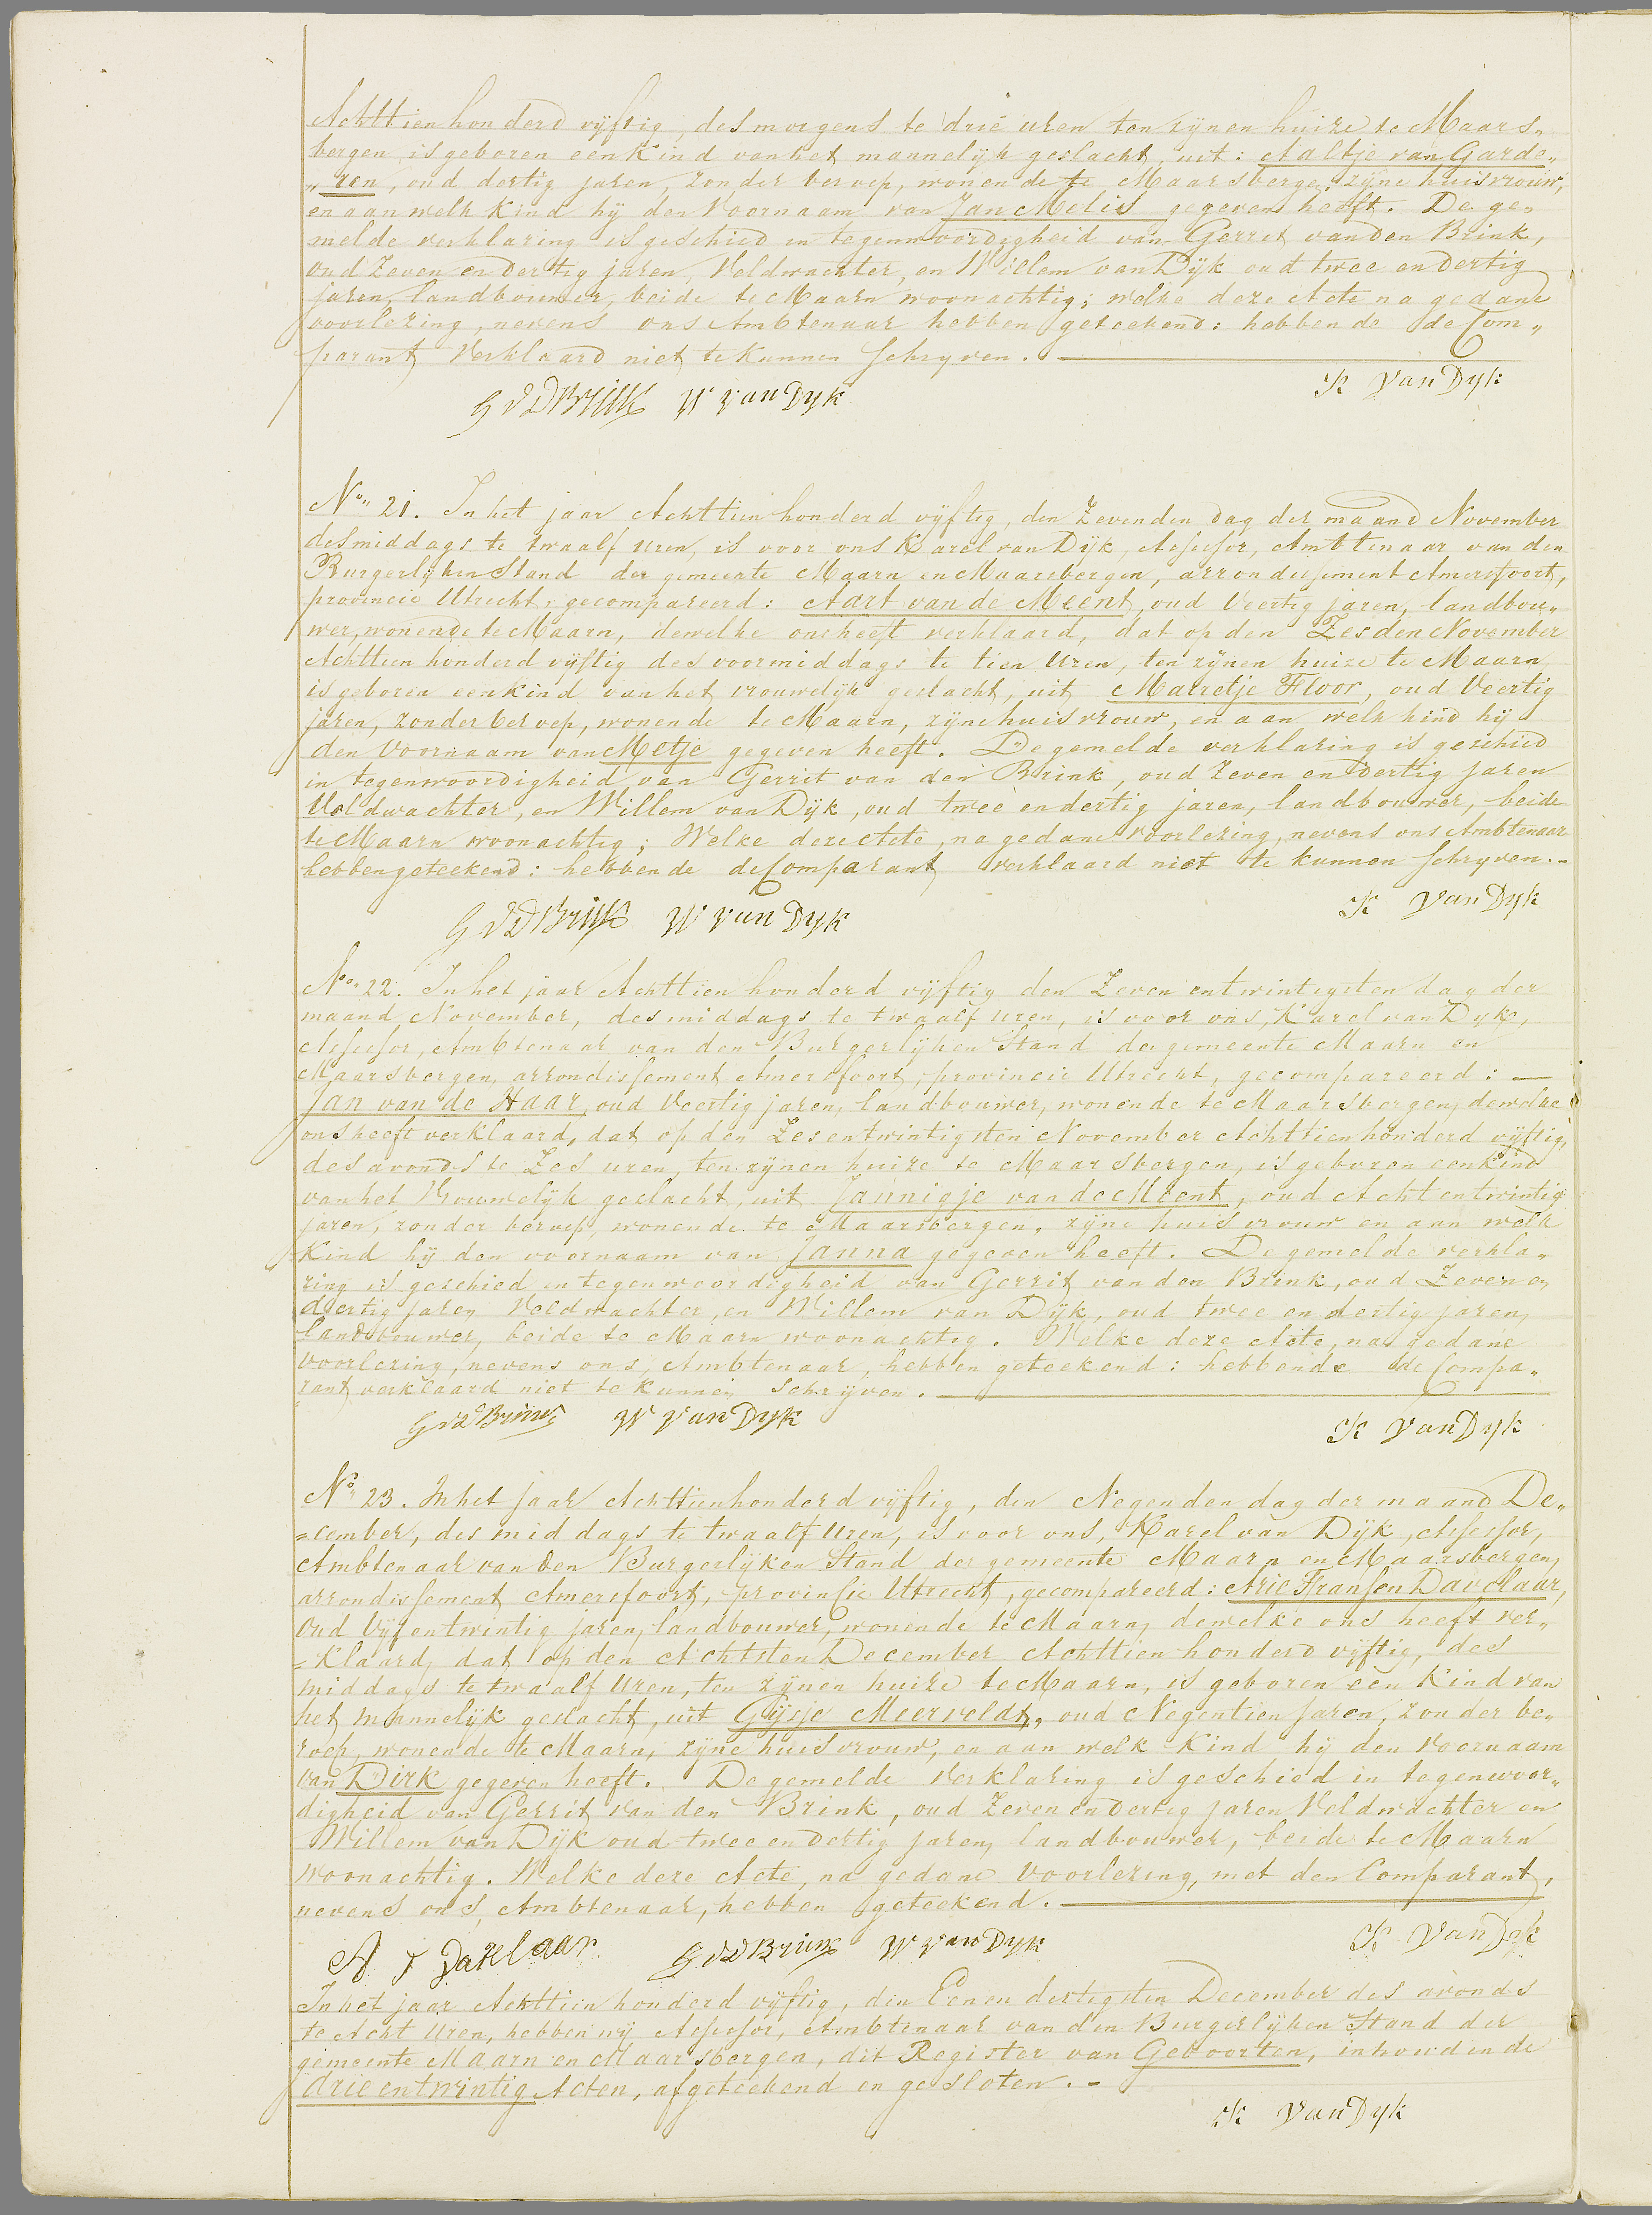 Achttienhonderd vijftig, des morgens te drie uren ten zijnen huize te Maars„
bergen is geboren een Kind van het mannelijk geslacht, uit: Aaltje van Garde„
„ren, oud dertig jaren, zonder beroep, wonende te Maarsbergen, zijne huisvrouw,
en aan welk Kind hij den Voornaam van Jan Melis gegeven heeft. De ge„
melde verklaring is geschied in tegenwoordigheid van Gerrit van den Brink,
oud Zeven en dertig jaren, Veldwachter, en Willem van Dijk oud twee en dertig
jaren, landbouwer, beide te Maarn woonachtig; welke deze Acte na gedane
voorlezing, nevens ons Ambtenaar hebben geteekend: hebbende de Com„
parant Verklaard niet te Kunnen Schryven.
G V D Brink W van Dyk K van Dyk
No„ 21. In het jaar Achttien honderd vijftig, den Zevenden dag der maand November
des middags te twaalf uren, is voor ons Karel van Dijk, Assessor, Ambtenaar van den
Burgerlijken Stand der gemeente Maarn en Maarsbergen, arrondissement Amersfoort,
provincie Utrecht, gecompareerd: Aart van de Meent, oud Veertig jaren, landbou„
wer, wonende te Maarn, dewelke ons heeft verklaard, dat op den Zesden November
Achttien honderd vijftig des voormiddags te tien Uren, ten zijnen huize te Maarn,
is geboren een kind van het vrouwelijk geslacht, uit Marretje Floor, oud Veertig
jaren, zonder beroep, wonende te Maarn, zijne huisvrouw, en aan welk kind hij
den Voornaam van Metje gegeven heeft. De gemelde verklaring is geschied
in tegenwoordigheid van Gerrit van den Brink, oud Zeven en dertig jaren
Veldwachter, en Willem van Dijk, oud twee en dertig jaren, landbouwer, beide
te Maarn woonachtig; Welke deze Acte, na gedane voorlezing, nevens ons Ambtenaar
hebben geteekend: hebbende de Comparant verklaard niet te kunnen Schryven.-
G V D Brink W van Dyk K van Dyk
No„ 22. In het jaar Achttien honderd vijftig den Zeven en twintigsten dag der
maand November, des middags te twaalf uren, is voor ons, Karel van Dyk,
Assessor, Ambtenaar van den Burgerlijken Stand der gemeente Maarn en
Maarsbergen, arrondissement Amersfoort, provincie Utrecht, gecompareerd: —
Jan van de Haar, oud Veertig jaren, landbouwer, wonende te Maarsbergen, dewelke
ons heeft verklaard, dat op den Zes en twintigsten November Achttien honderd vijftig,
des avonds te Zes uren, ten zijnen huize te Maarsbergen, is geboren een Kind
van het Vrouwelijk geslacht, uit Jannigje van de Meent, oud Acht en twintig
jaren, zonder beroep, wonende te Maarsbergen, zijne huisvrouw en aan welk
Kind hij den voornaam van Janna gegeven heeft. De gemelde verkla„
ring is geschied in tegenwoordigheid van Gerrit van den Brink, oud Zeven en
dertig jaren Veldwachter, en Willem van Dijk, oud twee en dertig jaren,
landbouwer, beide te Maarn woonachtig. Welke deze Acte, na gedane
voorlezing, nevens ons, Ambtenaar, hebben geteekend: hebbende de Compa„
rant verklaard niet te Kunnen Schrijven.
G V D Brink W van Dyk K van Dyk
No„ 23. In het jaar Achttienhonderd vijftig, den Negenden dag der maand De„
=cember, des middags te twaalf Uren, is voor ons, Karel van Dijk, Assessor,
Ambtenaar van den Burgerlijken Stand der gemeente Maarn en Maarsbergen,
arrondissement Amersfoort, provincie Utrecht, gecompareerd: Arie Fransen Davelaar,
Oud Vijf en twintig jaren, landbouwer, wonende te Maarn, dewelke ons heeft ver„
=klaard, dat op den Achtsten December Achttien honderd vijftig, des
middags te twaalf Uren, ten zijnen huize te Maarn, is geboren een Kind van
het mannelijk geslacht, uit Gijsje Meerveldt, oud Negentien jaren, zonder be„
roep, wonende te Maarn, zijne huisvrouw, en aan welk Kind hij den Voornaam
van Dirk gegeven heeft. De gemelde Verklaring is geschied in tegenwoor„
digheid van Gerrit van den Brink, oud Zeven en dertig jaren Veldwachter en
Willem van Dijk oud twee en dertig jaren, landbouwer, beide te Maarn
woonachtig. Welke deze Acte, na gedane Voorlezing, met den Comparant,
nevens ons, Ambtenaar, hebben geteekend.
A F Davelaar G V D Brink W van Dyk K van Dyk
In het jaar Achttien honderd vijftig, den Een en dertigsten December des avonds
te Acht Uren, hebben wij Assessor, Ambtenaar van den Burgerlijken Stand der
gemeente Maarn en Maarsbergen, dit Register van Geboorten, inhoudende
drie en twintig Acten, afgeteekend en gesloten.-
K van Dyk